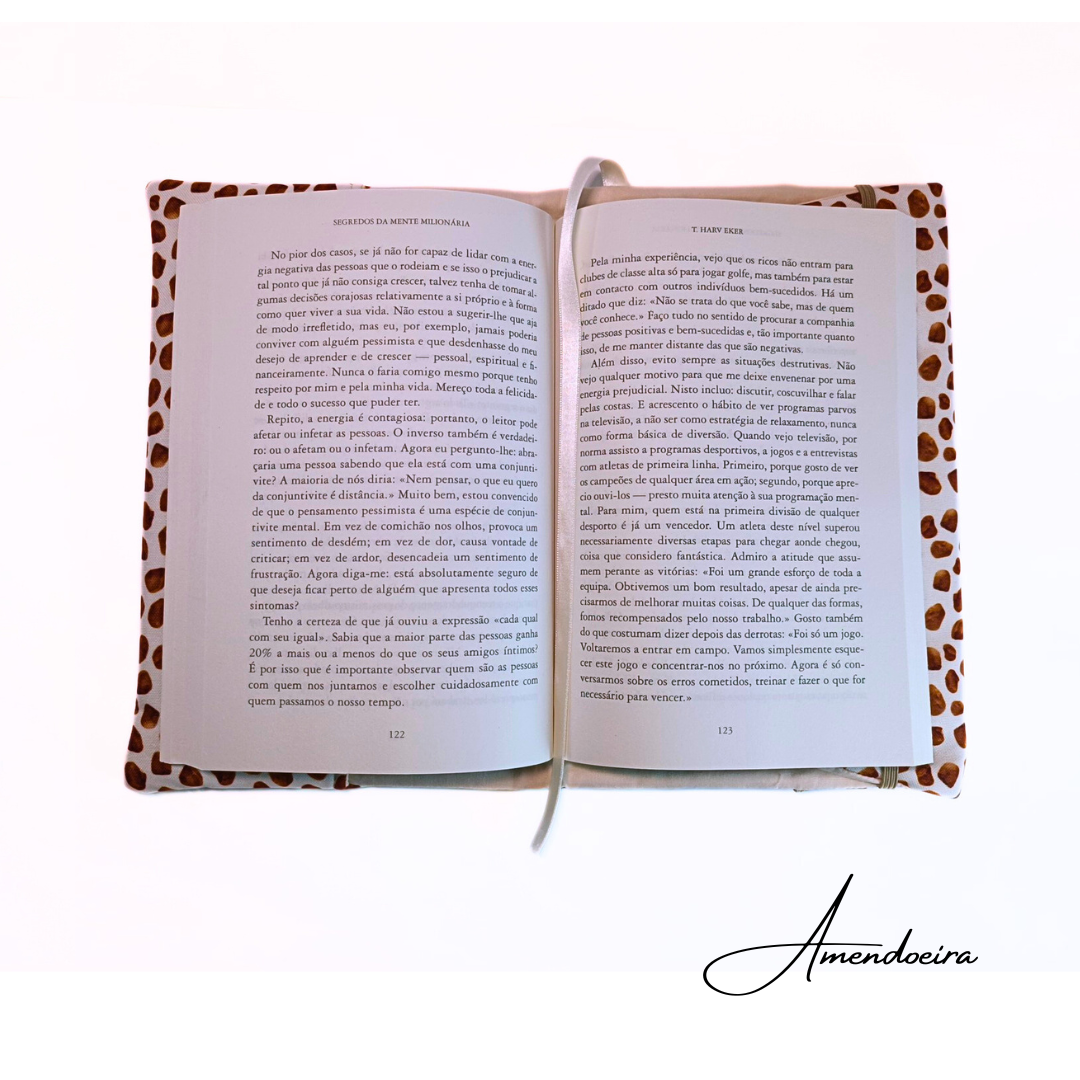 SEGREDOS DA MENTE MILIONÁRIA
No pior dos casos, se já não for capaz de lidar com a ener-
gia negativa das pessoas que o rodeiam e se isso o prejudicar a
tal ponto que já não consiga crescer, talvez tenha de tomar al-
gumas decisões corajosas relativamente a si próprio e à forma
como quer viver a sua vida. Não estou a sugerir-lhe que aja
de modo irrefletido, mas eu, por exemplo, jamais poderia
conviver com alguém pessimista e que desdenhasse do meu
desejo de aprender e de crescer — pessoal, espiritual e fi-
nanceiramente. Nunca o faria comigo mesmo porque tenho
respeito por mim e pela minha vida. Mereço toda a felicida-
de e todo o sucesso que puder ter.
Repito, a energia é contagiosa: portanto, o leitor pode
afetar ou infetar as pessoas. O inverso também é verdadei-
ro: ou o afetam ou o infetam. Agora eu pergunto-lhe: abra-
çaria uma pessoa sabendo que ela está com uma conjunti-
vite? A maioria de nós diria: «Nem pensar, o que eu quero
da conjuntivite é distância.» Muito bem, estou convencido
de que o pensamento pessimista é uma espécie de conjun-
tivite mental. Em vez de comichão nos olhos, provoca um
sentimento de desdém; em vez de dor, causa vontade de
criticar; em vez de ardor, desencadeia um sentimento de
frustração. Agora diga-me: está absolutamente seguro de
que deseja ficar perto de alguém que apresenta todos esses
sintomas?
Tenho a certeza de que já ouviu a expressão «cada qual
com seu igual». Sabia que a maior parte das pessoas ganha
20% a mais ou a menos do que os seus amigos íntimos?
É por isso que é importante observar quem são as pessoas
com quem nos juntamos e escolher cuidadosamente com
quem passamos o nosso tempo.
122
T. HARV EKER
Pela minha experiência, vejo que os ricos não entram para
clubes de classe alta só para jogar golfe, mas também para estar
em contacto com outros indivíduos bem-sucedidos. Há um
ditado que diz: «Não se trata do que você sabe, mas de quem
você conhece.» Faço tudo no sentido de procurar a companhia
de pessoas positivas e bem-sucedidas e, tão importante quanto
isso, de me manter distante das que são negativas.
Além disso, evito sempre as situações destrutivas. Não
vejo qualquer motivo para que me deixe envenenar por uma
energia prejudicial. Nisto incluo: discutir, coscuvilhar e falar
pelas costas. E acrescento o hábito de ver programas parvos
na televisão, a não ser como estratégia de relaxamento, nunca
como forma básica de diversão. Quando vejo televisão, por
norma assisto a programas desportivos, a jogos e a entrevistas
com atletas de primeira linha. Primeiro, porque gosto de ver
os campeões de qualquer área em ação; segundo, porque apre-
cio ouvi-los — presto muita atenção à sua programação men-
tal. Para mim, quem está na primeira divisão de qualquer
desporto é já um vencedor. Um atleta deste nível superou
necessariamente diversas etapas para chegar aonde chegou,
coisa que considero fantástica. Admiro a atitude que assu-
mem perante as vitórias: «Foi um grande esforço de toda a
equipa. Obtivemos um bom resultado, apesar de ainda pre-
cisarmos de melhorar muitas coisas. De qualquer das formas,
fomos recompensados pelo nosso trabalho.» Gosto também
do que costumam dizer depois das derrotas: «Foi só um jogo.
Voltaremos a entrar em campo. Vamos simplesmente esque-
cer este jogo e concentrar-nos no próximo. Agora é só con-
versarmos sobre os erros cometidos, treinar e fazer o que for
necessário para vencer.»
123
Amendoeira